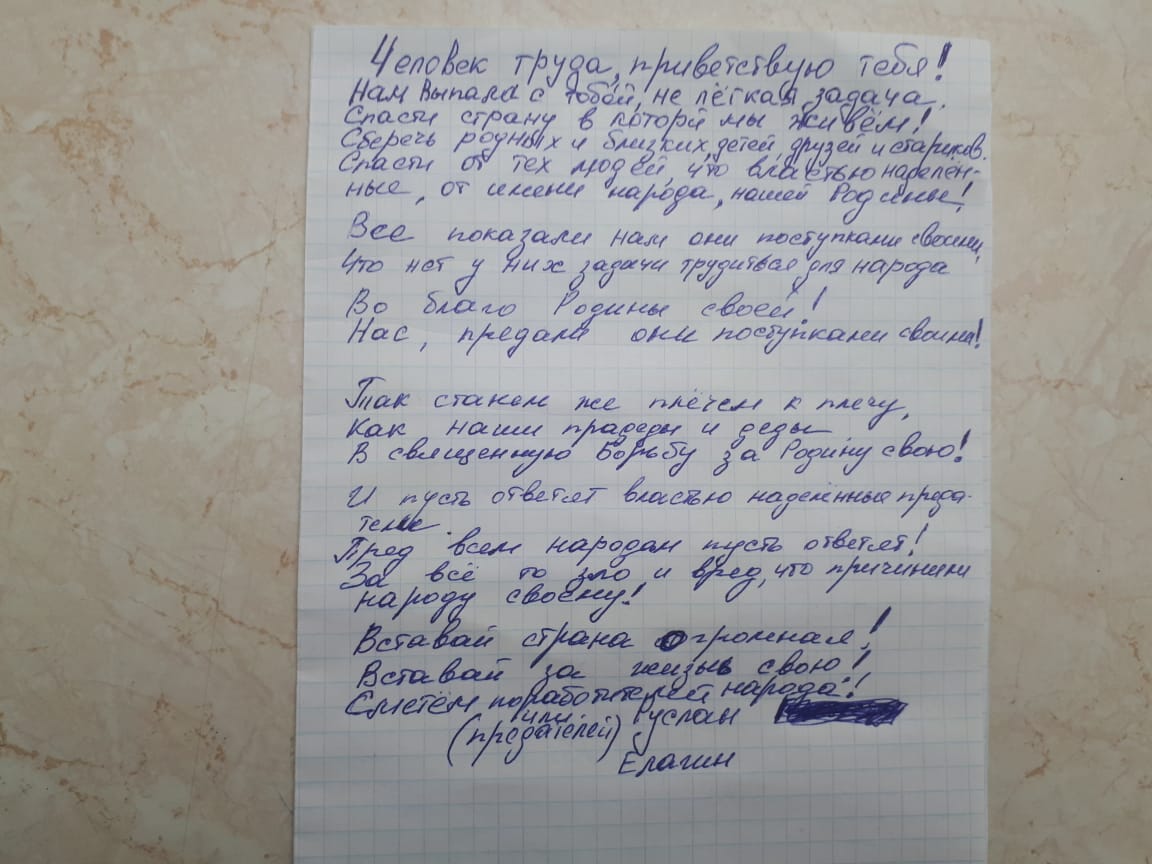 Человек труда, приветствую тебя!
Нам выпала с тобой, не лёгкая задача.
Спасти страну в которй мы живём!
Сберечь родных и близких, детей, друзей и стариков.
Спасти от тех людей, что властью наделён-
ные, от имени народа, нашей Родины!
Все показали нам они поступками своими,
Что нет у них задачи трудиться для народа
Во благо Родины своей!
Нас, предали они поступками своими!
Так станем же плечем к плечу,
Как наши прадеды и деды
В священную Борьбу за Родину свою!
И пусть ответят властью наделённые преда-
тели.
Пред всем народам пусть ответят!
За всё то зло и вред, что причинили
народу своему!
Вставай страна огромная!
Вставай за жизнь свою!
Сметём поработителей народа!
или Руслан
(предателей)
Елагин